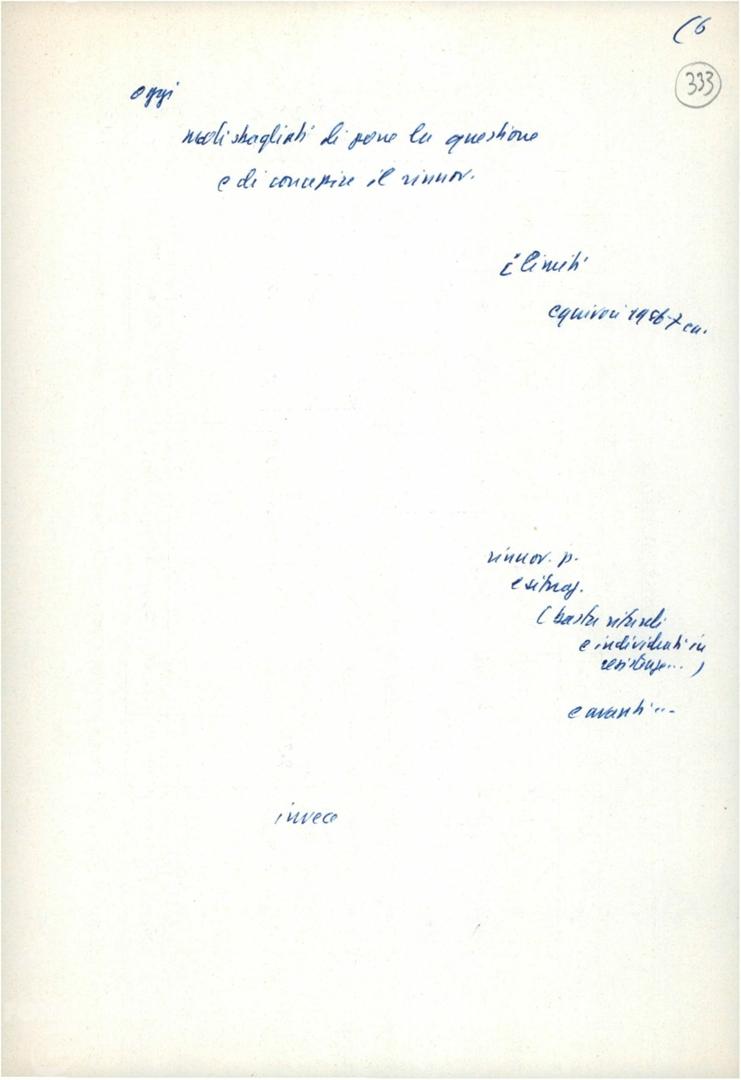 (6
333
oggi
modi sbagliati di porre la questione
e di concepire il rinnov.
i limiti
equivoci 1956-7 ecc.
rinnov. p.
e
(basta
e individuati in
resistenze... )
e avanti...
invece